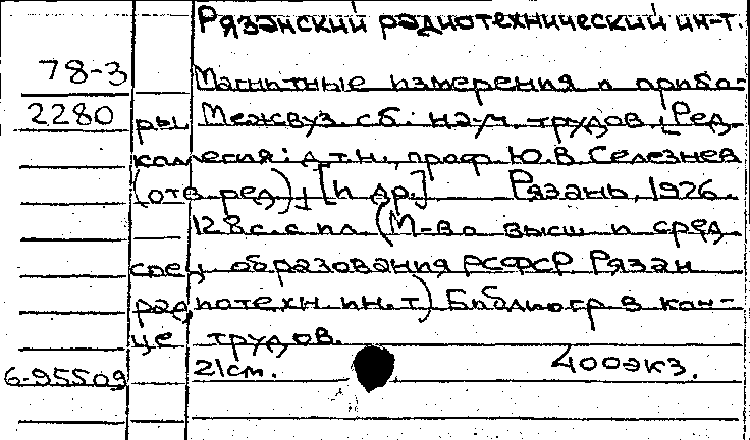 Рязанский радиотехнический ин-т.
78-3 Магнитные измерения и прибо-
2280 ры. Межвуз. сб. науч. трудов. [Ред-
коллегия: д.т.н., проф. Ю.В. Селезнев
(отв. ред), [и др.] Рязань, 1976.
128с. с ил. (М-во высш и сред.
спец образования РСФСР Рязан
радиотехн. ин.т) Библиогр в кон-
це трудов.
6-95509 21см. 400экз.